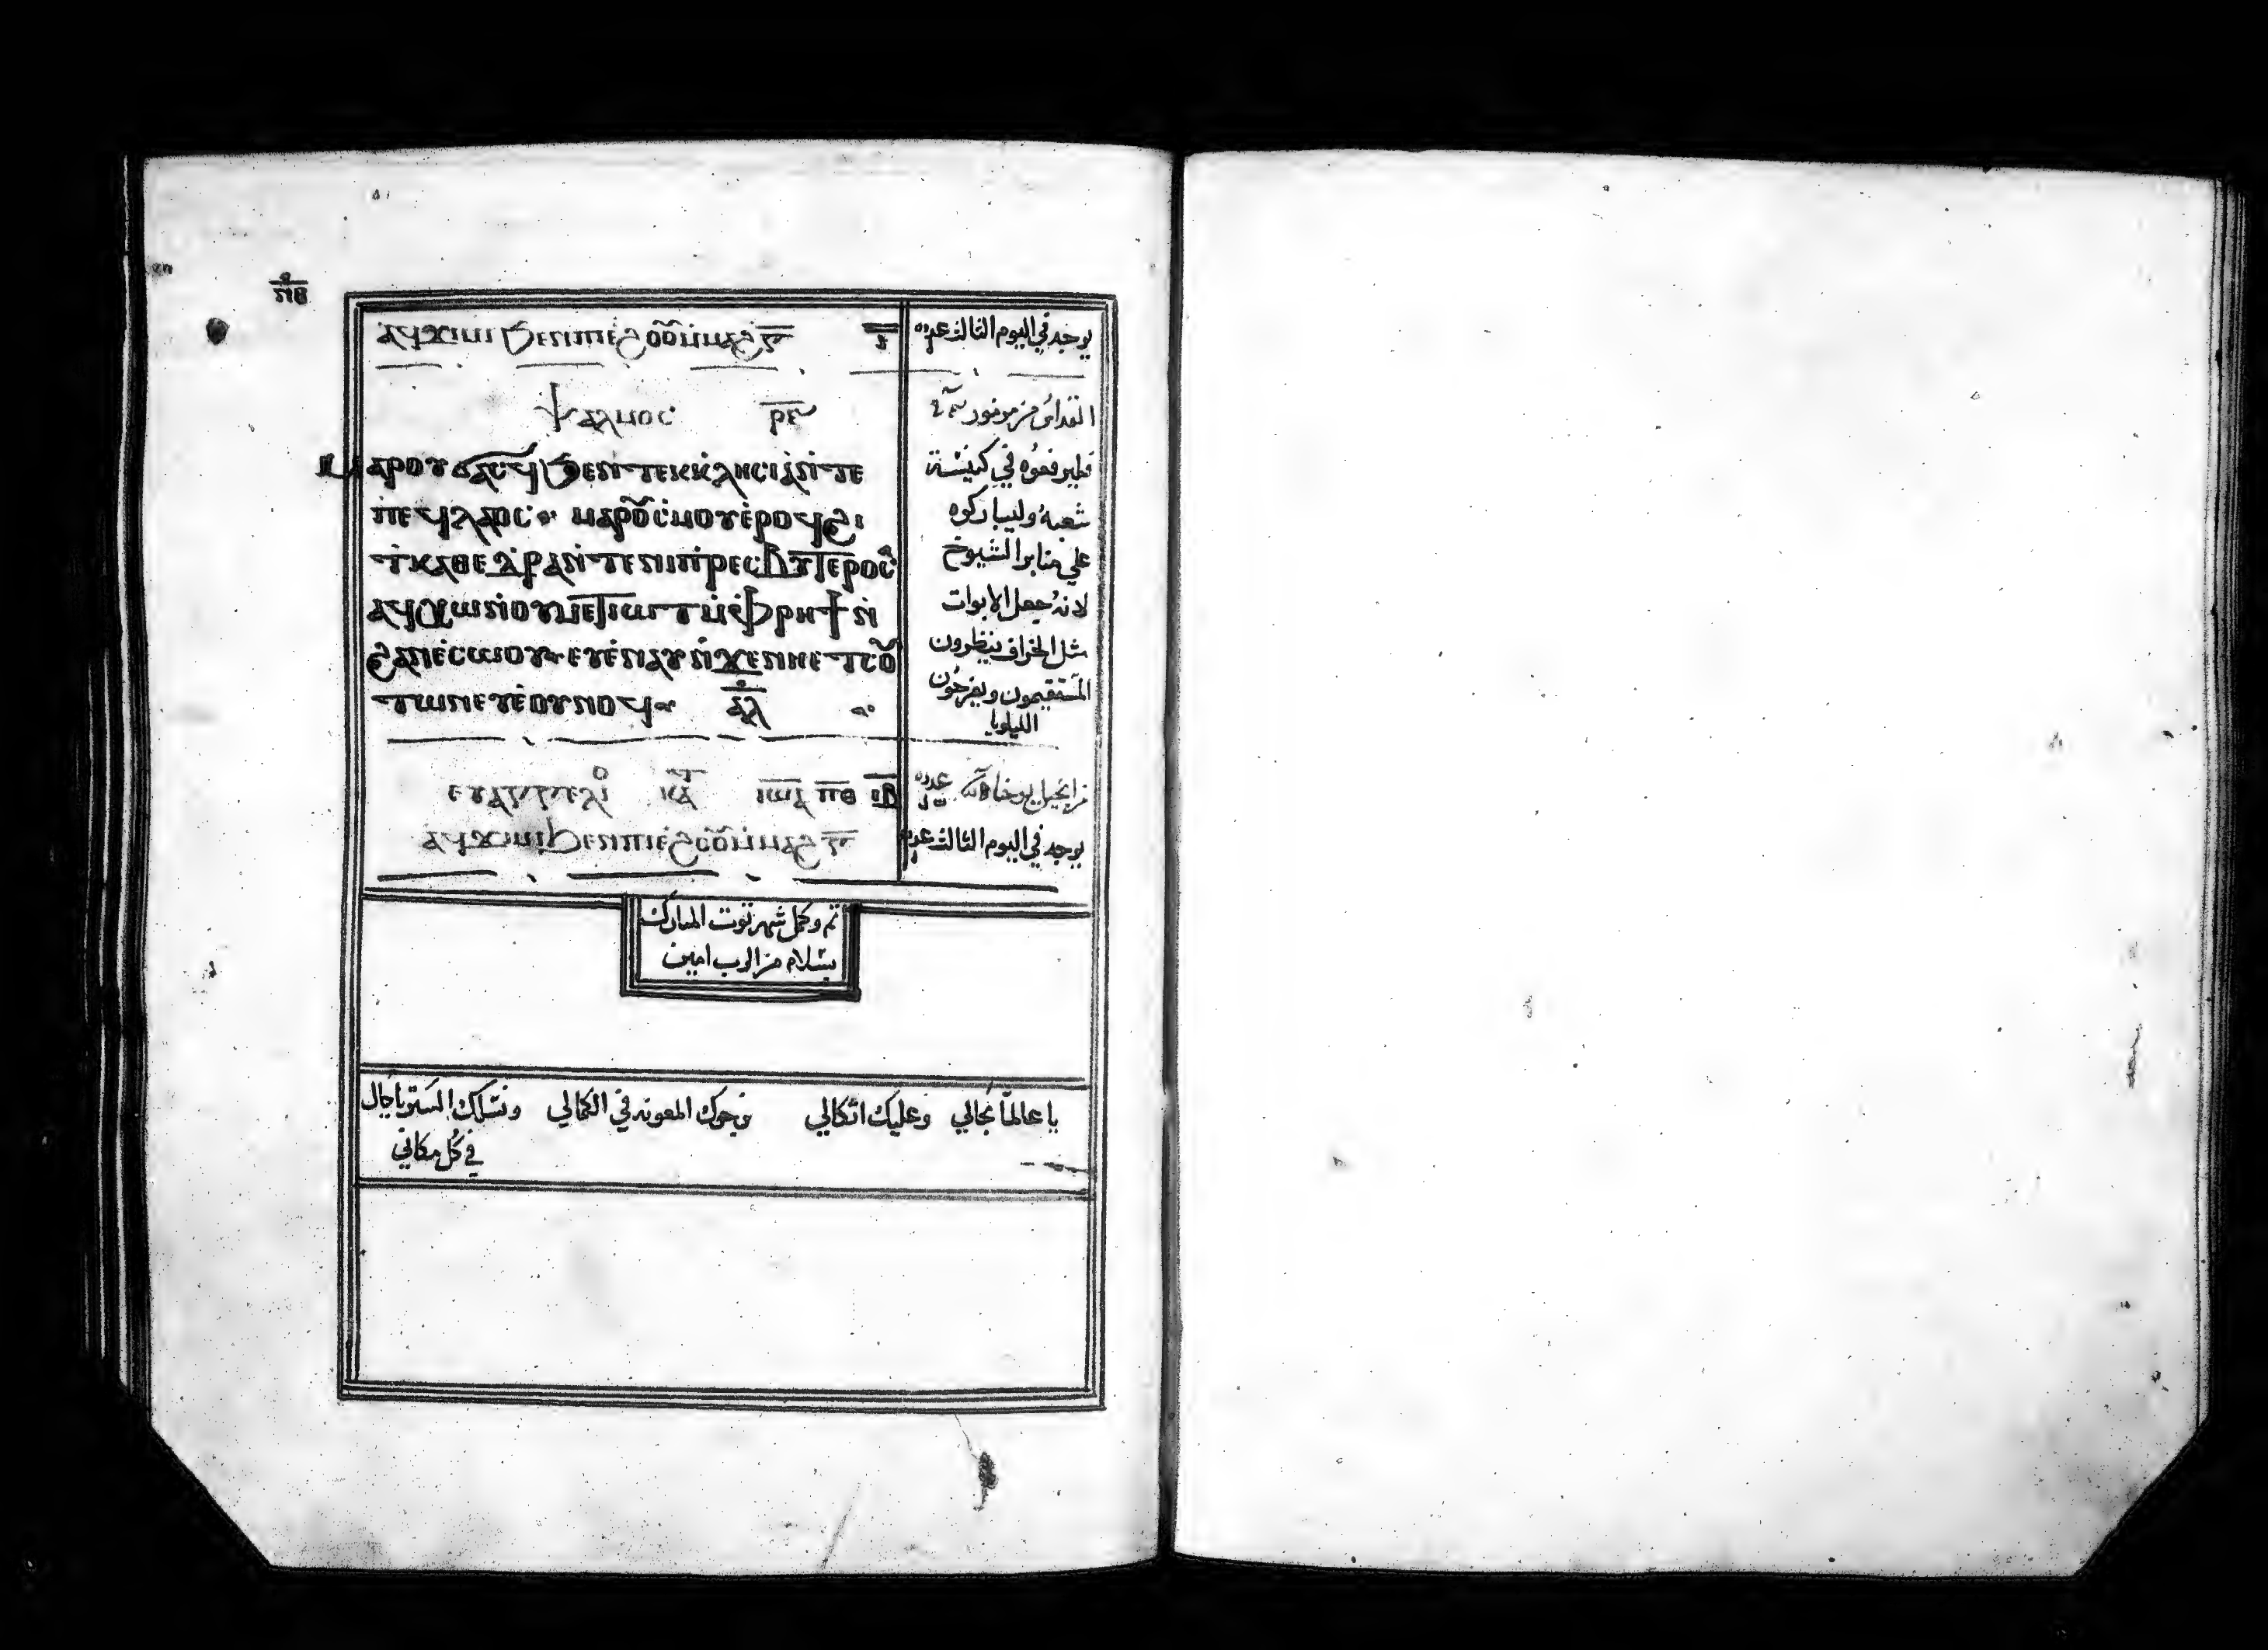 ⲡ̅ⲑ̅
ⲁϥⲭⲏ ϧⲉⲛ ⲡⲓⲉϩⲟⲟⲩ ⲙ̀ⲙⲁϩ ⲅ̅
يوجد في اليوم الثالث عدده
ⲯⲁⲗⲙⲟⲥ ⲣ̅ⲋ̅
القداس مزمور
ⲙⲁⲣⲟⲩϭⲁⲥϥ ϧⲉⲛ ⲧⲉⲕⲕ̀ⲗⲏⲥⲓⲁ ⲛ̀ⲧⲉ
ⲡⲉϥⲗⲁⲟⲥ ⲙⲁⲣⲟⲩⲥ̀ⲙⲟⲩ ⲉ̀ⲣⲟϥ ϩⲓ
ϯⲕⲁⲑⲉⲇⲣⲁ ⲛ̀ⲧⲉ ⲛⲓⲡ̀ⲣⲉⲥⲃⲩⲧⲉⲣⲟⲥ
ⲁϥⲭⲱ ⲛ̀ⲟⲩⲙⲉⲧⲓⲱⲧ ⲙ̀ⲫ̀ⲣⲏϯ ⲛ̀
ϩⲁⲛⲉ̀ⲥⲱⲟⲩ ⲉⲩⲉ̀ⲛⲁⲩ ⲛ̀ϫⲉ ⲛⲏⲉⲧⲥⲟⲩ
ⲧⲱⲛ ⲉⲩⲉ̀ⲟⲩⲛⲟϥ ⲁ̅ⲗ̅
فليرفعوه في كنيسة
شعبه وليباركوه
علي منابر الشيوخ
لانه جعل الابوات
مثل الخراف ينظرون
المستقيمون ويفرحون
الليلويا
ⲉⲩⲁⲅⲅⲉⲗⲓ ⲕⲁ ⲓⲱⲁ ⲡ̅ⲑ̅ ⲓ̅ⲃ̅
من انجيل يوحنا عدده
ⲁϥⲭⲏ ϧⲉⲛ ⲡⲓⲉϩⲟⲟⲩ ⲙ̀ⲙⲁϩ ⲅ̅
يوجد في اليوم الثالث عدده
تم وكمل شهر توت المبارك
بسلام من الرب امين
يا عالماً بحالي وعليك اتكالي نرجوك المعونه في الكمالي ونسلك الستر
في كل مكاني